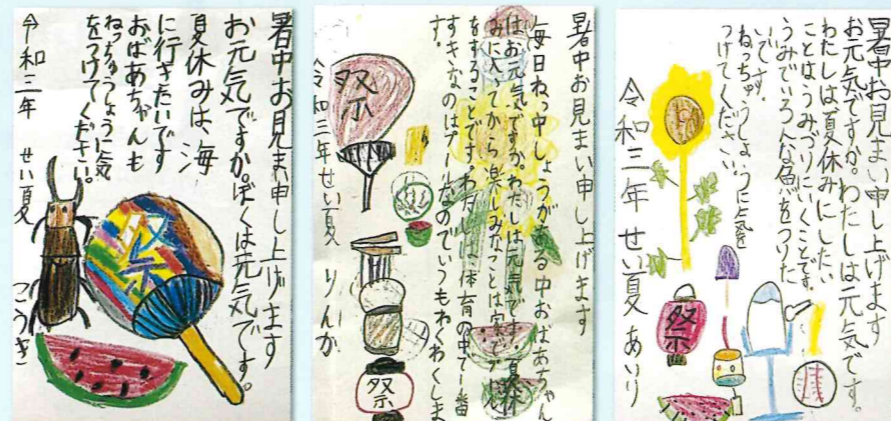 暑中お見まい申し上げます
お元気ですか。ぼくは元気です。
夏休みは、海
に行きたいです
おばあちゃんも
ねっちゅうしょうに気
をつけてください。
令和三年 せい夏 こうき
祭
暑中お見まい申し上げます
毎日ねっ中しょうがある中おばあちゃん
はお元気ですか。わたしは元気です。夏休
みに入ってから楽しみなことは家でプール
をすることです。わたしは体育の中で一番
すきなのはプールなのでいつもわくわくしま
す。
令和三年せい夏 りんか
祭
祭
暑中お見まい申し上げます
お元気ですか。わたしは元気です。
わたしは夏休みにしたい
ことはうみづりにいくことです。
うみでいろんな魚をつりた
いです。
ねっちゅうしょうに気を
つけてください。
令和三年 せい夏 あいり
祭